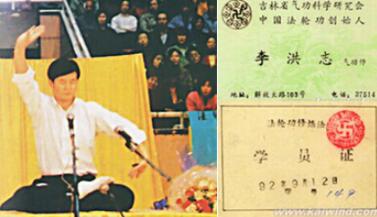 吉林省气功科学研究会
中国法轮功创始人
李洪志 气功师
地址：解放大路103号 电话：37514
法轮功修炼法
学员证
92年9月12日
学号 148
www.kaiwind.com